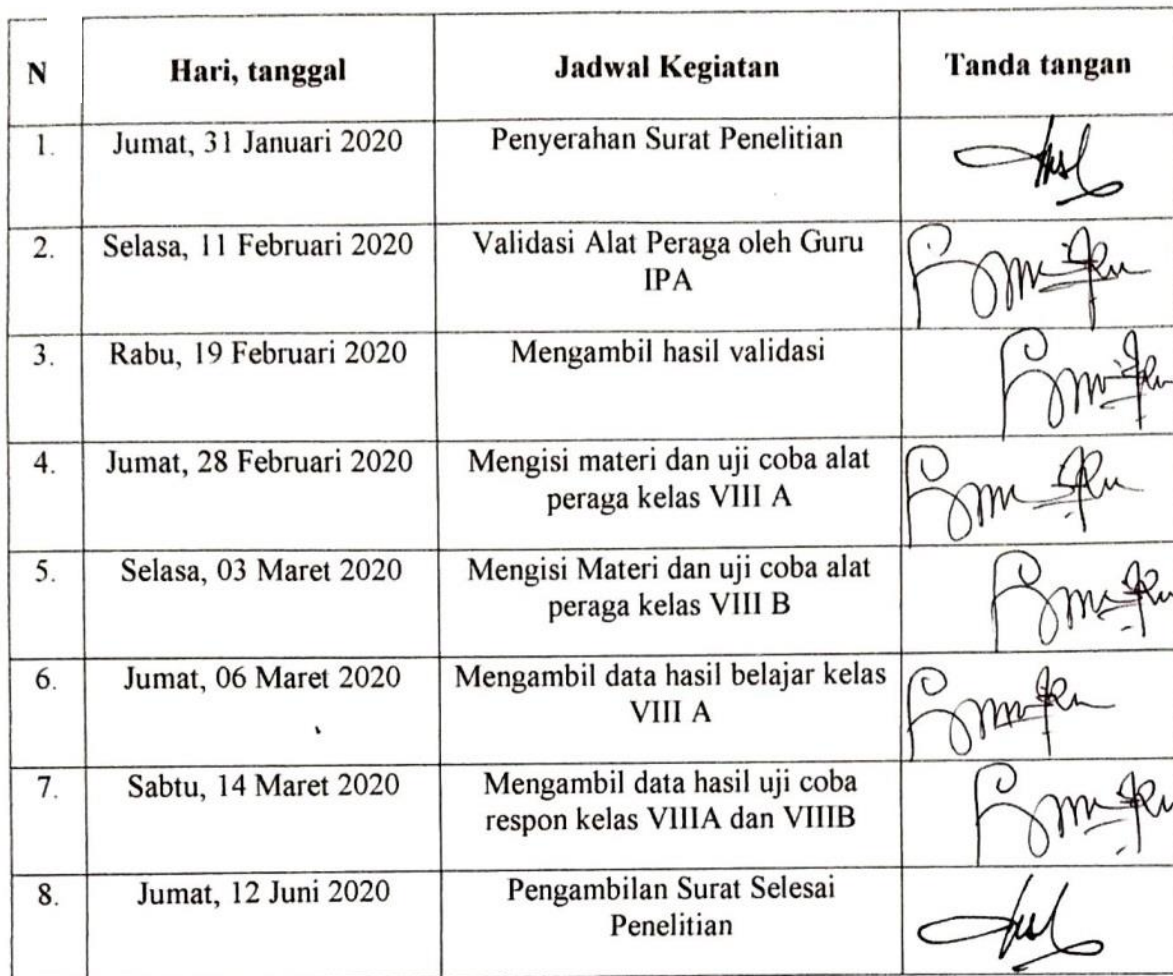 N Hari, tanggal Jadwal Kegiatan Tanda tangan
1. Jumat, 31 Januari 2020 Penyerahan Surat Penelitian
2. Selasa, 11 Februari 2020 Validasi Alat Peraga oleh Guru
IPA
3. Rabu, 19 Februari 2020 Mengambil hasil validasi
4. Jumat, 28 Februari 2020 Mengisi materi dan uji coba alat
peraga kelas VIII A
5. Selasa, 03 Maret 2020 Mengisi Materi dan uji coba alat
peraga kelas VIII B
6. Jumat, 06 Maret 2020 Mengambil data hasil belajar kelas
VIII A
7. Sabtu, 14 Maret 2020 Mengambil data hasil uji coba
respon kelas VIIIA dan VIIIB
8. Jumat, 12 Juni 2020 Pengambilan Surat Selesai
Penelitian